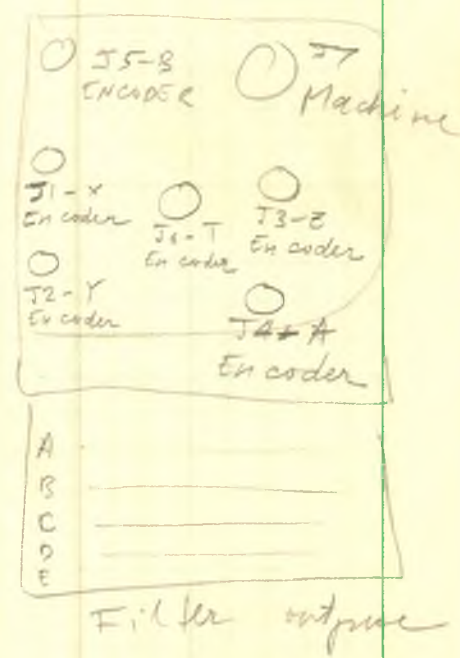 J5-B
ENCODER
J7
Machine
J1-X
Encoder
J6-T
Encoder
J3-Z
Encoder
J2-Y
Encoder
J4-A
Encoder
A
B
C
D
E
Filter